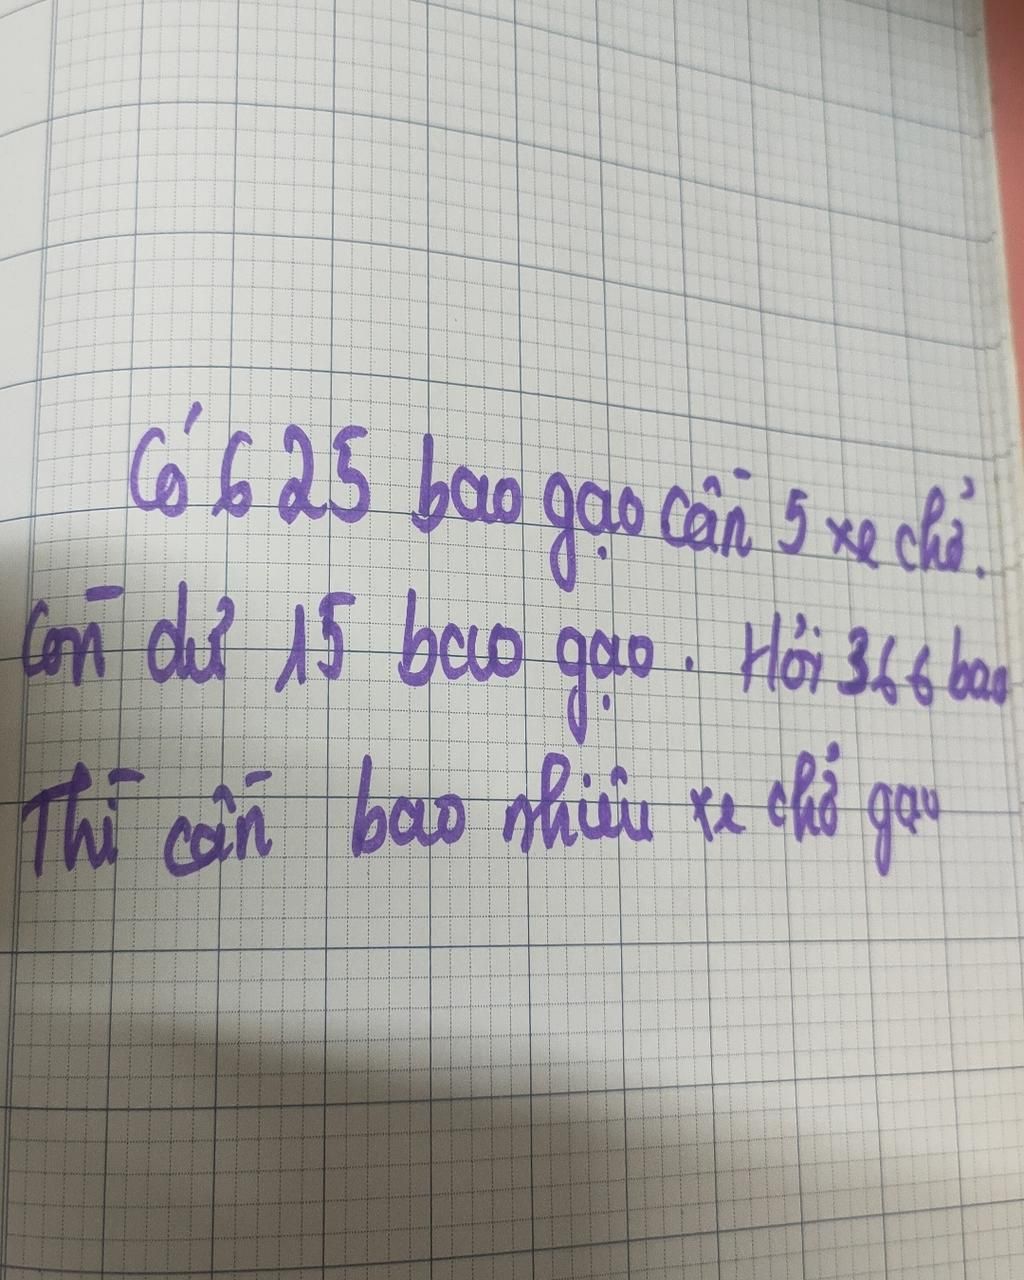 Có 625 bao gạo cần 5 xe chở.
Còn dư 15 bao gạo. Hỏi 366 bao
Thì cần bao nhiêu xe chở gạo